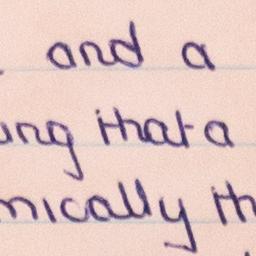 and a
ing that a
nically th